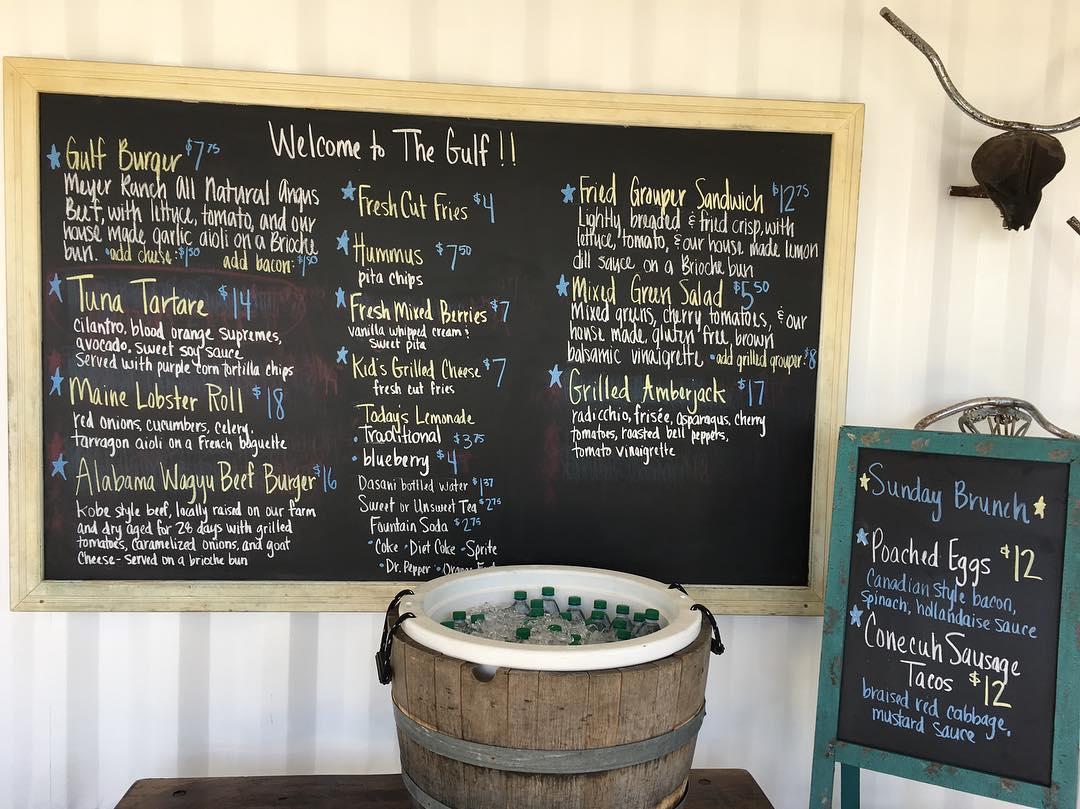 Welcome to The Gulf !!
Gulf Burger $7.75
Meyer Ranch All Natural Angus
Beef, with lettuce, tomato, and our
house made garlic aioli on a Brioche
bun. •add cheese: $1.50 add bacon: $1.50
Tuna Tartare $14
cilantro, blood orange supremes,
avocado, sweet soy sauce
served with purple corn tortilla chips
Maine Lobster Roll $18
red onions, cucumbers, celery,
tarragon aioli on a French baguette
Alabama Wagyu Beef Burger $16
Kobe style beef, locally raised on our farm
and dry aged for 28 days with grilled
tomatoes, caramelized onions, and goat
Cheese - served on a brioche bun
Fresh Cut Fries $4
Hummus $7.50
pita chips
Fresh Mixed Berries $7
vanilla whipped cream &
sweet pita
Kid's Grilled Cheese $7
fresh cut fries
Today's Lemonade
• Traditional $3.75
• blueberry $4
Dasani bottled water $1.37
Sweet or Unsweet Tea $2.75
Fountain Soda $2.75
•Coke •Diet Coke •Sprite
•Dr. Pepper •
Fried Grouper Sandwich $12.75
Lightly breaded & fried crisp, with
lettuce, tomato, & our house made lemon
dill sauce on a Brioche bun
Mixed Green Salad $5.50
Mixed greens, cherry tomatoes, & our
house made, gluten free, brown
balsamic vinaigrette. •add grilled grouper: $8
Grilled Amberjack $17
radicchio, frisée, asparagus, cherry
tomatoes, roasted bell peppers,
tomato vinaigrette
Sunday Brunch
Poached Eggs $12
Canadian style bacon,
spinach, hollandaise sauce
Conecuh Sausage
Tacos $12
braised red cabbage,
mustard sauce